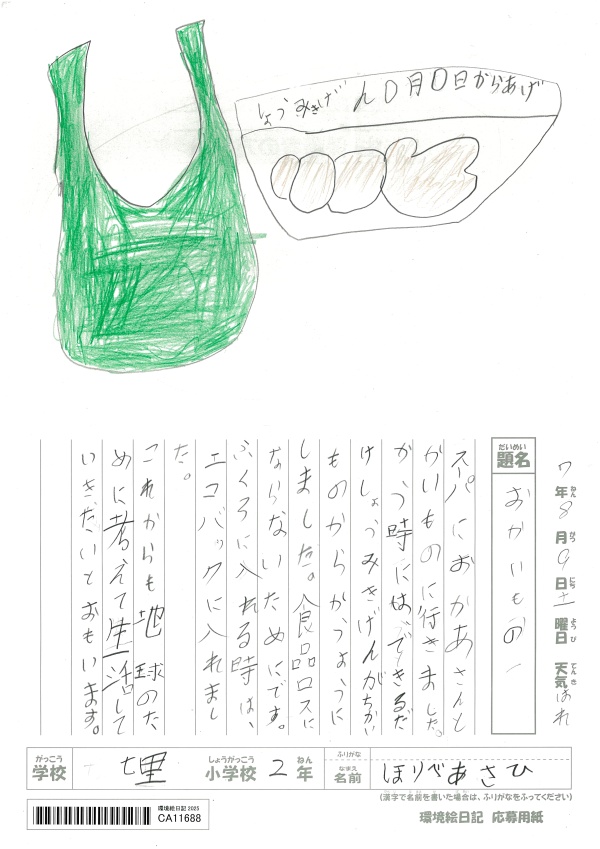 しょうみきげん0月0日からあげ
7年8月9日土曜日 天気はれ
ねん がつ にち ようび てんき
だいめい
題名 おかいもの
スーパにおかあさんと
かいものに行きました。
かう時にはできるだ
けしょうみきげんがちかい
ものからかうように
しました。食品ロスに
ならないためにです。
ふくろに入れる時は、
エコバックに入れまし
た。
これからも地球のた
めに考えて生活して
いきたいとおもいます。
がっこう しょうがっこう ねん ふりがな
学校 小学校 2年 なまえ 名前 ほりべあさひ
(漢字で名前を書いた場合は、ふりがなをふってください)
環境絵日記 2025
CA11688
環境絵日記 応募用紙